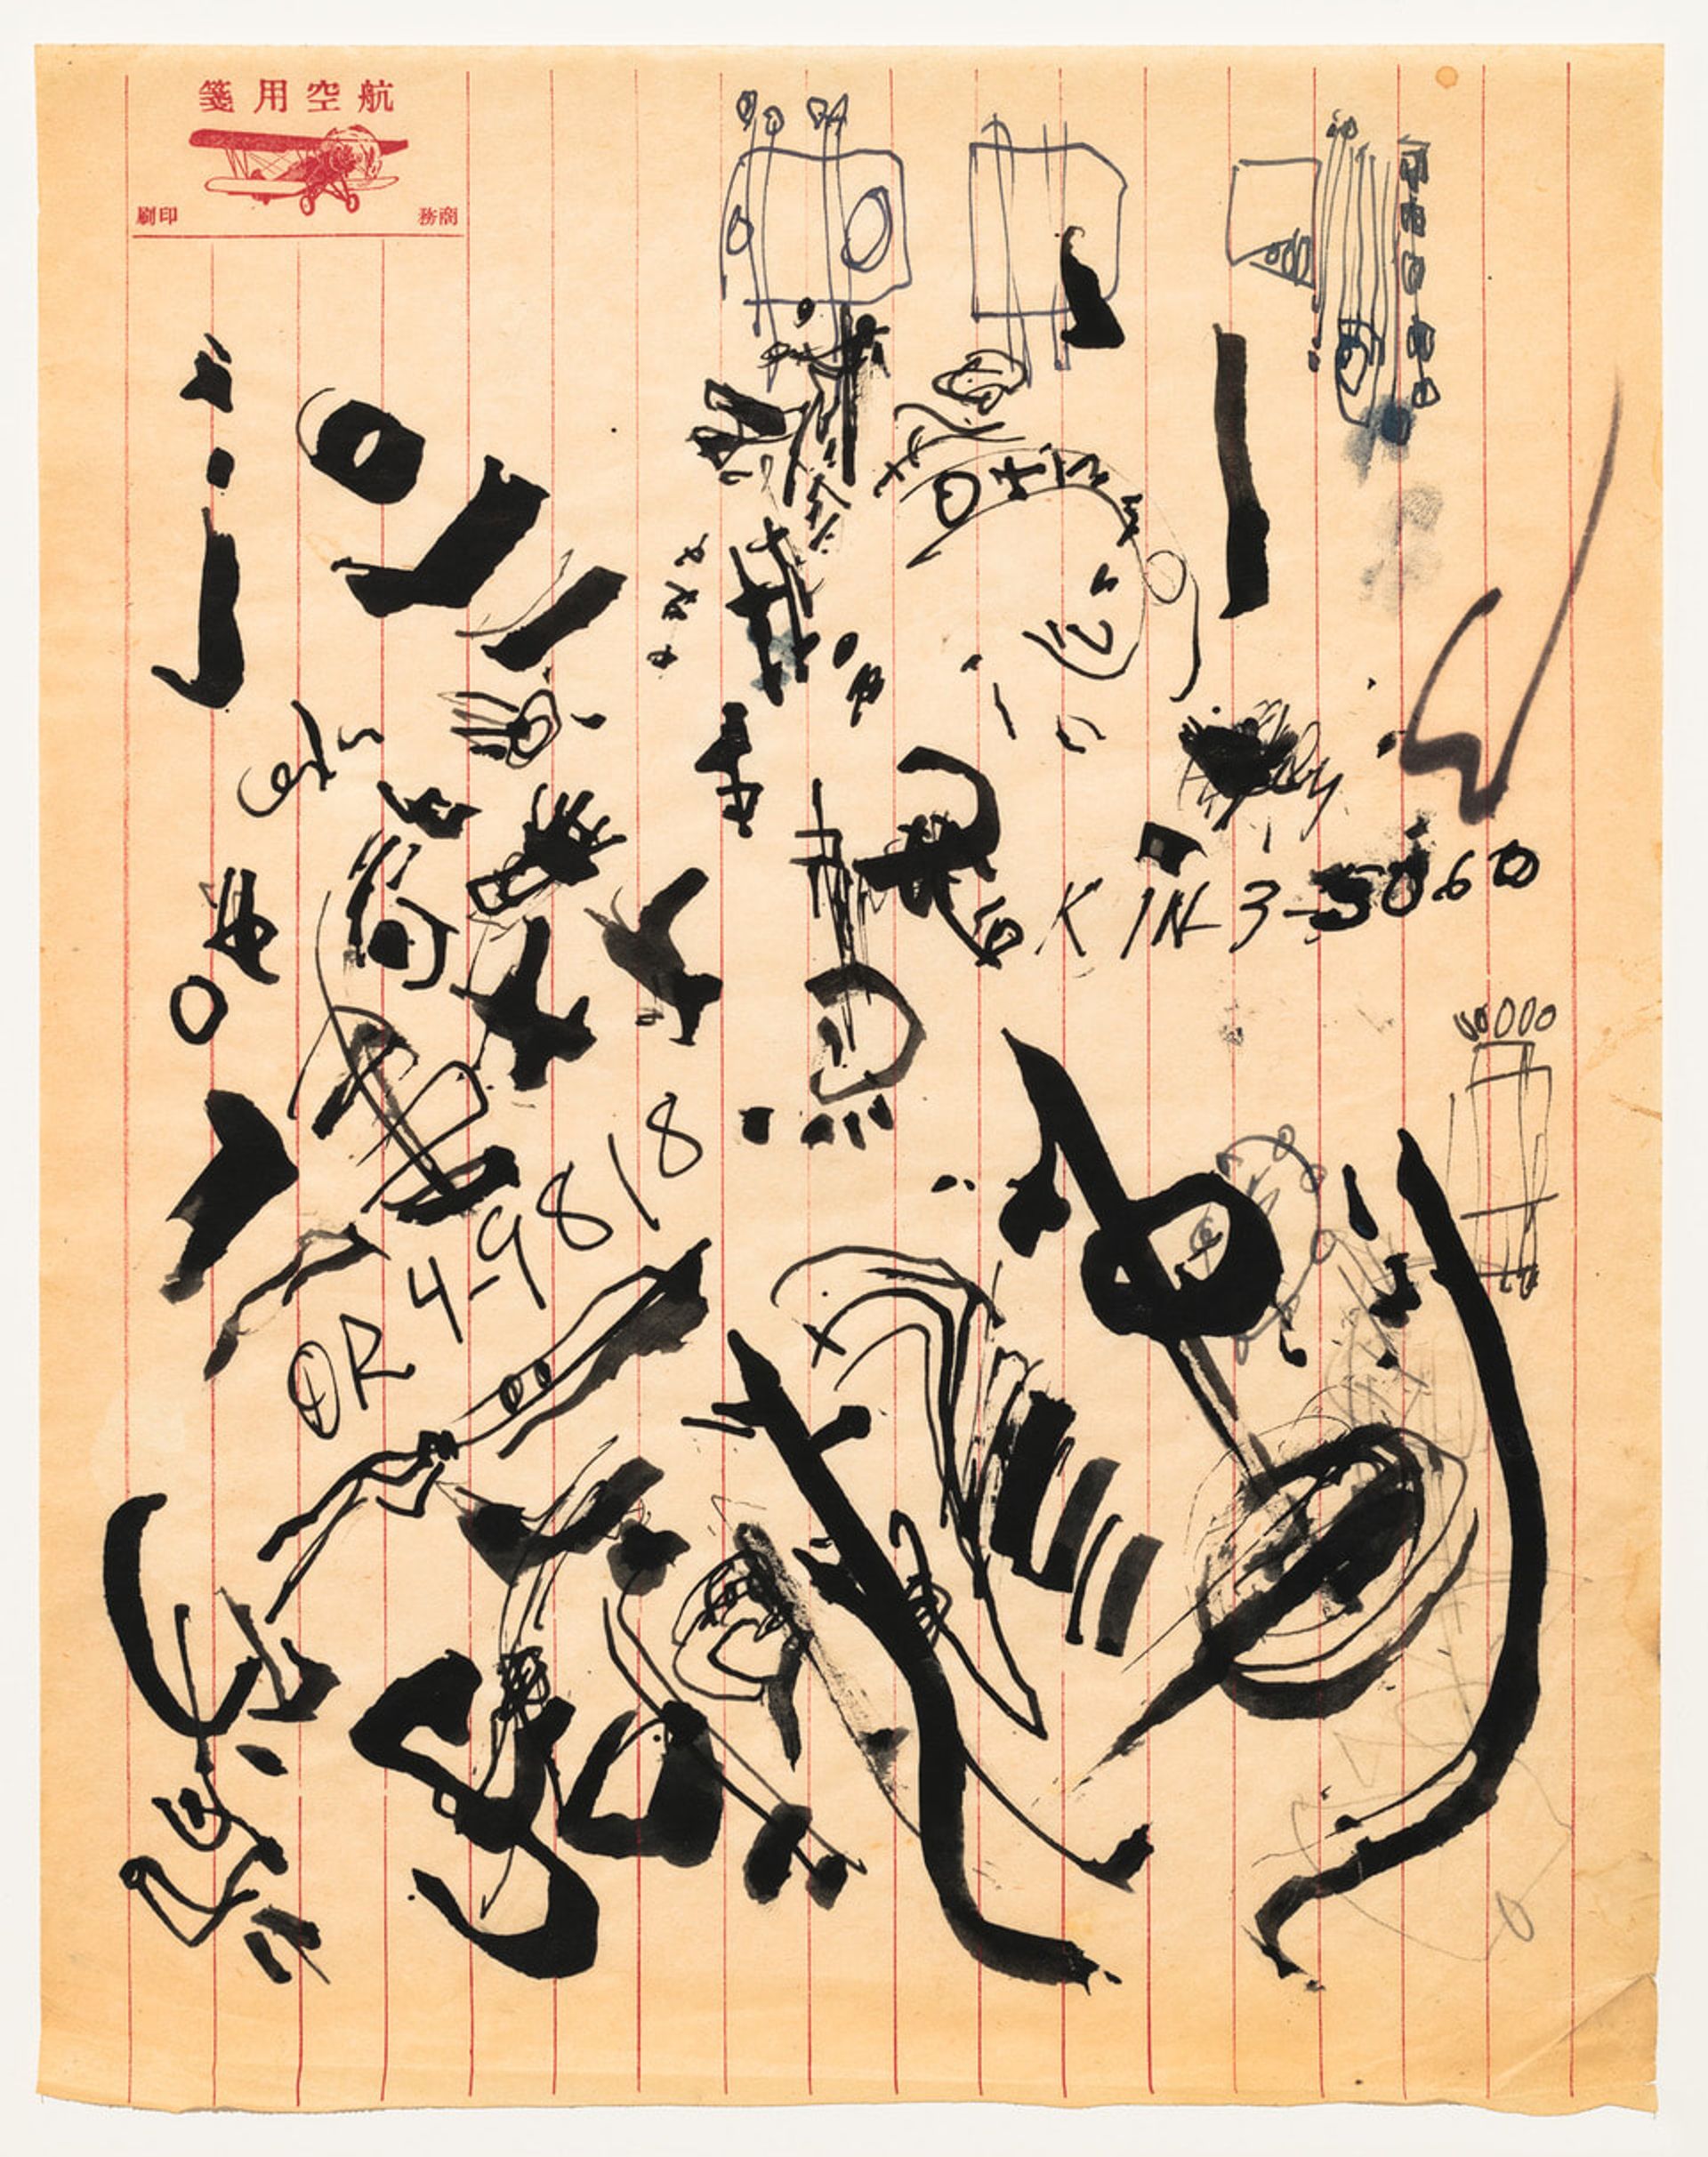 航空用箋
商務 印刷
KIN 3-5060
OR 4-9818